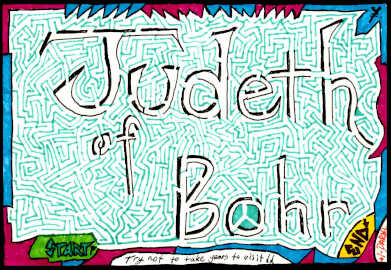 Judeth
of
Bahr
START
END
Try not to take years to visit it